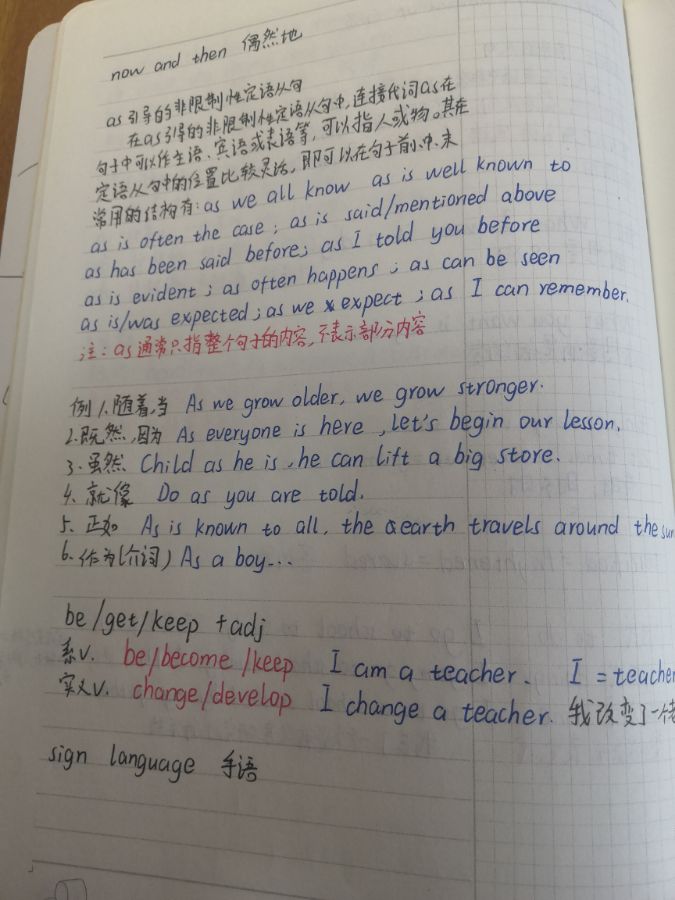 now and then 偶然地
as引导的非限制性定语从句
在as引导的非限制性定语从句中,连接代词as在
句子中可以作主语、宾语或表语等,可以指人或物。其在
定语从句中的位置比较灵活,即可以在句子前、中、末
常用的结构有:as we all know as is well known to
as is often the case; as is said/mentioned above
as has been said before; as I told you before
as is evident; as often happens; as can be seen
as is/was expected; as we expect; as I can remember.
注:as通常只指整个句子的内容,不表示部分内容
例1.随着,当 As we grow older, we grow stronger.
2.既然,因为 As everyone is here, let's begin our lesson.
3.虽然 Child as he is, he can lift a big store.
4.就像 Do as you are told.
5.正如 As is known to all, the earth travels around the sun
6.作为(介词) As a boy...
be/get/keep +adj
系v. be/become/keep I am a teacher. I = teacher
实义v. change/develop I change a teacher. 我改变了一
sign language 手语